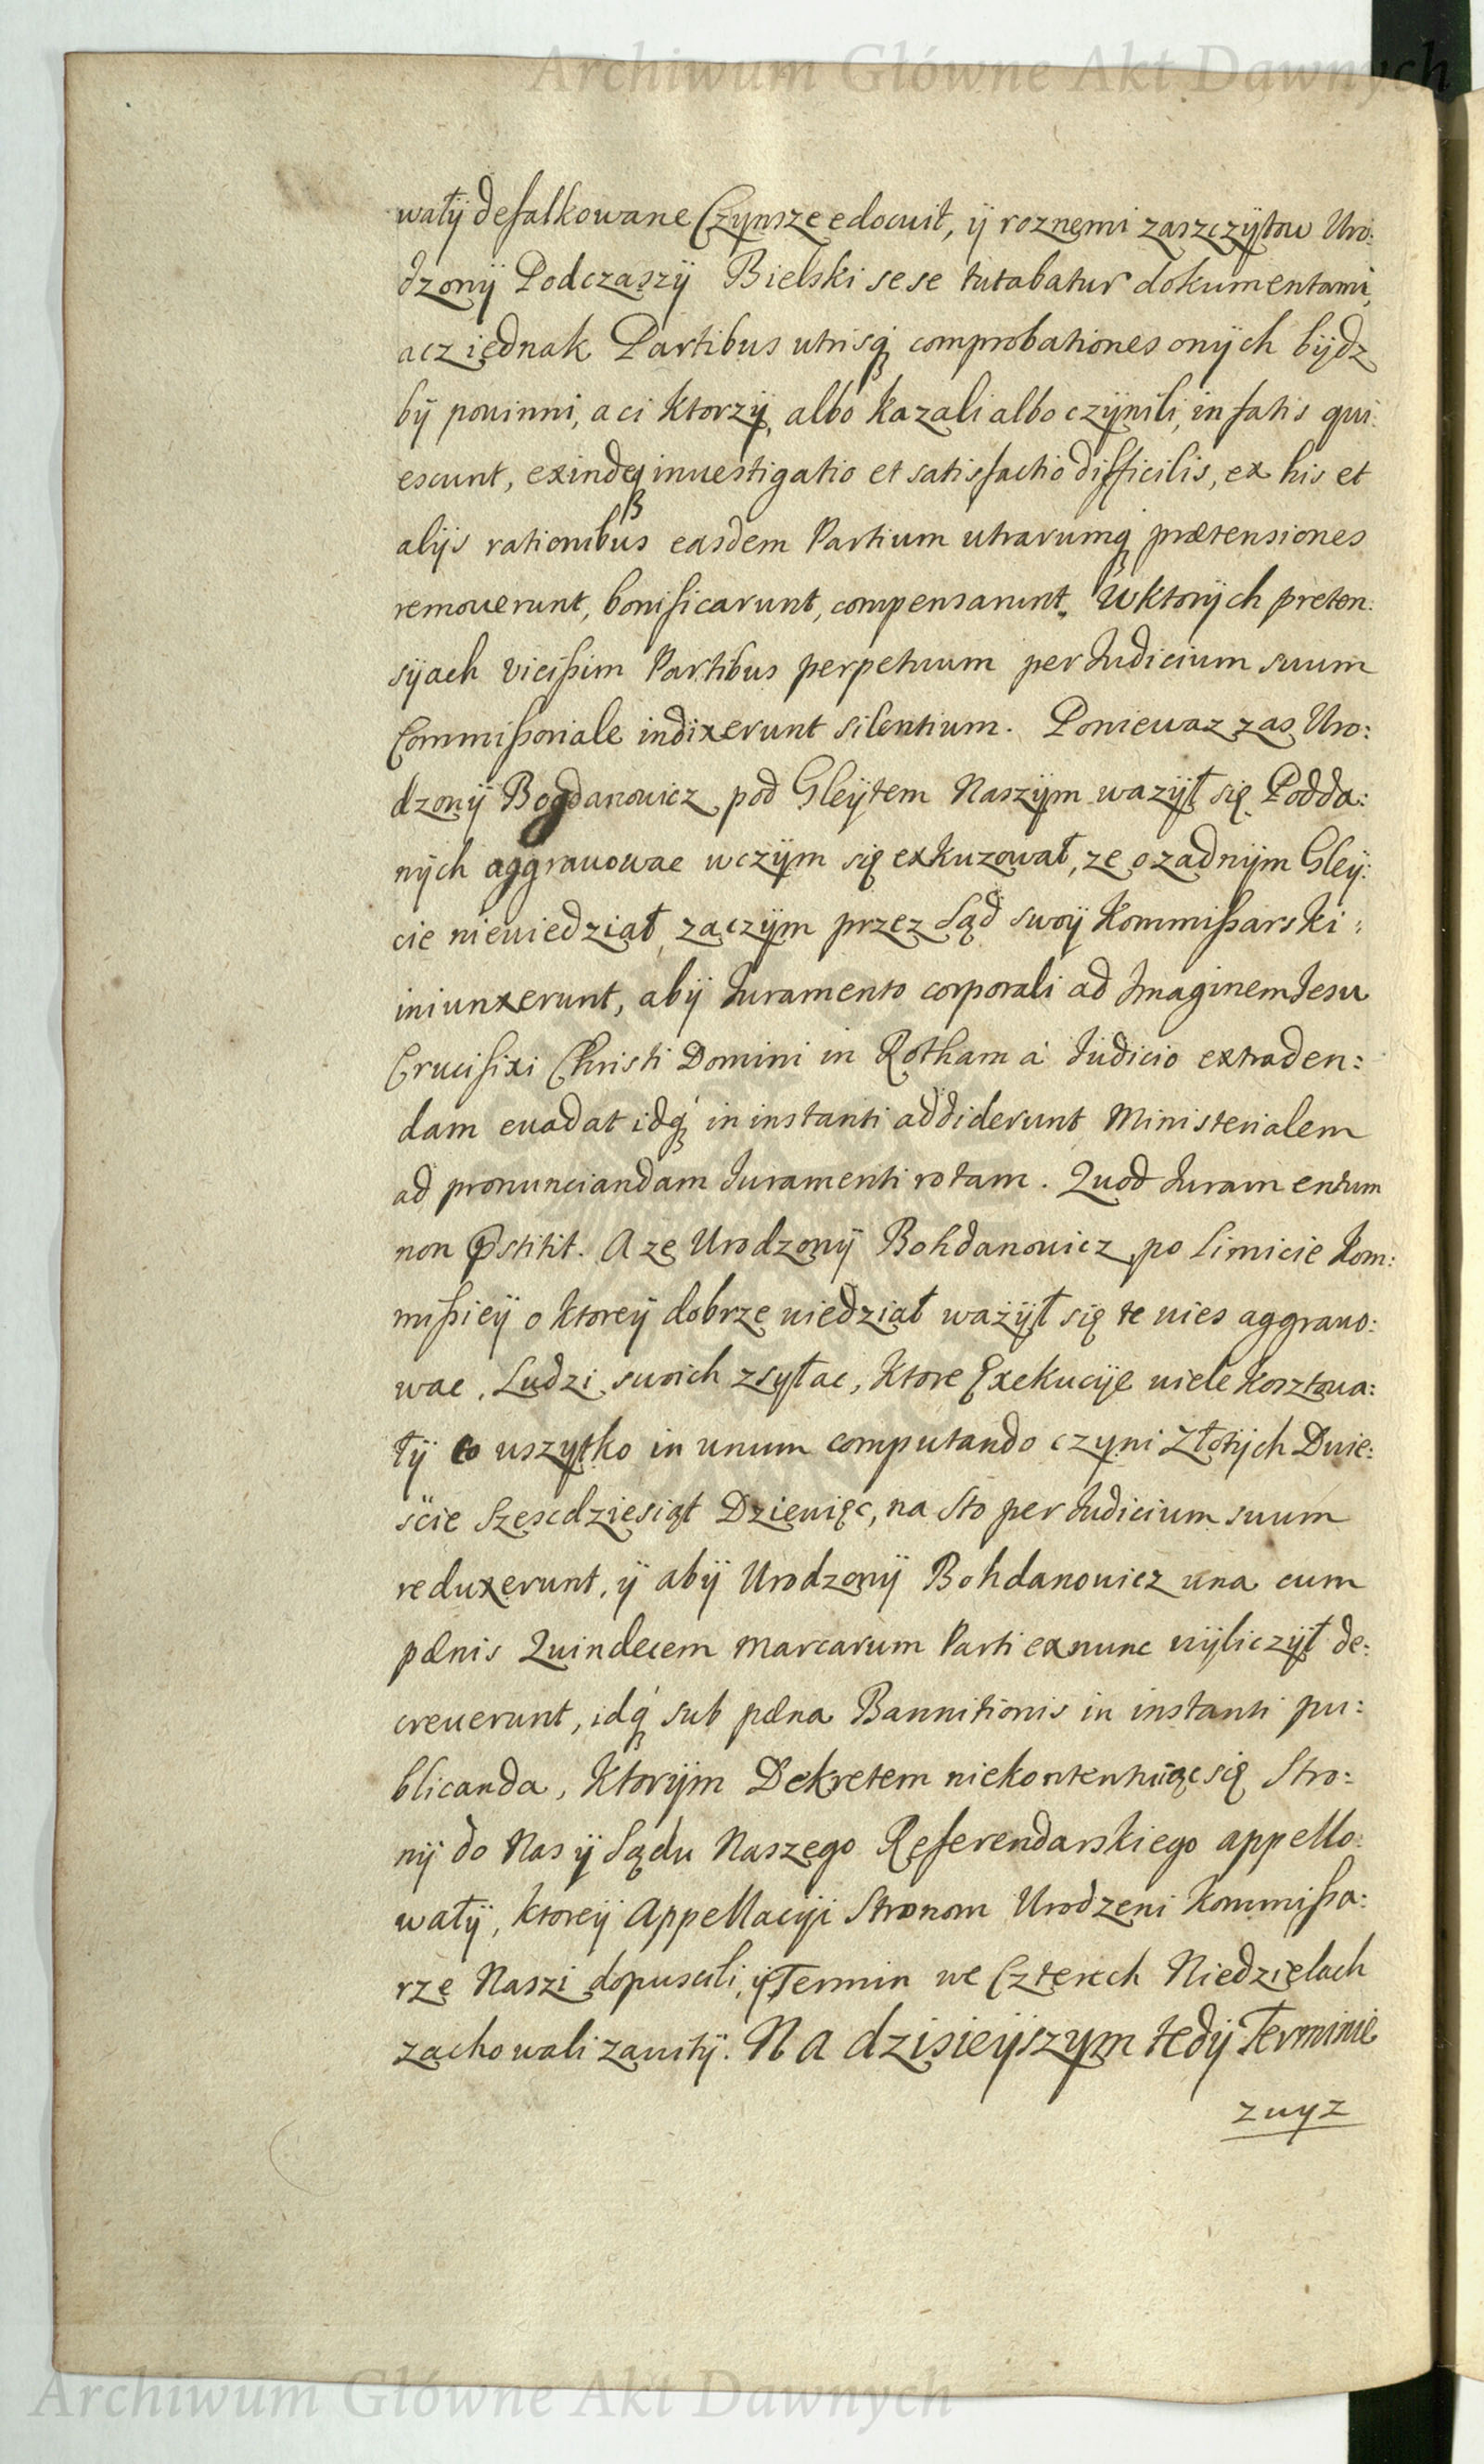 Archiwum Główne Akt Dawnych
wałÿ defalkowane Czÿnsze edocuit, ÿ roznemi zaszczÿtow Uro:
dzonÿ Podczaszÿ Bielski sese tutabatur dokumentami,
acz iednak Partibus utrisq comprobationes onÿch bÿdz
bÿ powinni, a ci ktorzÿ, albo kazali albo czÿnili, in fatis qui:
escunt, exindeq inuestigatio et satisfactio difficilis, ex his et
alijs rationibus easdem Partium utrarumq prætensiones
remouerunt, bonificarunt, compensarunt. Wktorÿch preten:
sÿach vicißim Partibus perpetuum per Iudicium suum
Commißoriale indixerunt silentium. Poniewaz zas Uro:
dzonÿ Bogdanowicz pod Gleÿtem Naszÿm wazÿł się Podda:
nÿch aggrauowac wczÿm się exkuzował, ze o zadnÿm Gleÿ:
cie niewiedział, zaczÿm przez Sąd swoÿ Kommißarski:
iniunxerunt, abÿ Iuramento corporali ad Imaginem Iesu
Crucifixi Christi Domini in Rotham á Iudicio extraden:
dam euadat idq in instanti addiderunt Ministerialem
ad pronunciandam Iuramenti rotam. Quod Iuramentum
non pstitit. A ze Urodzonÿ Bohdanowicz po limicie Kom:
mißieÿ o ktoreÿ dobrze wiedział ważÿł się te wies aggrawo:
wac, Ludzi swoich zsyłac, ktore Exekucÿe wiele kosztowa:
łÿ co wszytko in unum computando czyni Złotÿch Dwie:
scie Szescdziesiąt Dziewięc, na Sto per Iudicium suum
reduxerunt, ÿ abÿ Urodzonÿ Bohdanowicz una cum
pænis Quindecem Marcarum Parti exnunc wÿliczÿł de:
creuerunt, idq sub pæna Bannitionis in instanti pu:
blicanda, Ktorÿm Dekretem niekontentuiąc się Stro:
nÿ do Nas ÿ Sądu Naszego Referendarskiego appello:
wałÿ, ktoreÿ Appellacÿi Stronom Urodzeni Kommißa:
rze Naszi dopuscili, ÿ Termin we Czterech Niedzielach
zachowali zawitÿ. Na dzisieÿszym tedÿ Terminie
zwyz
Archiwum Główne Akt Dawnych